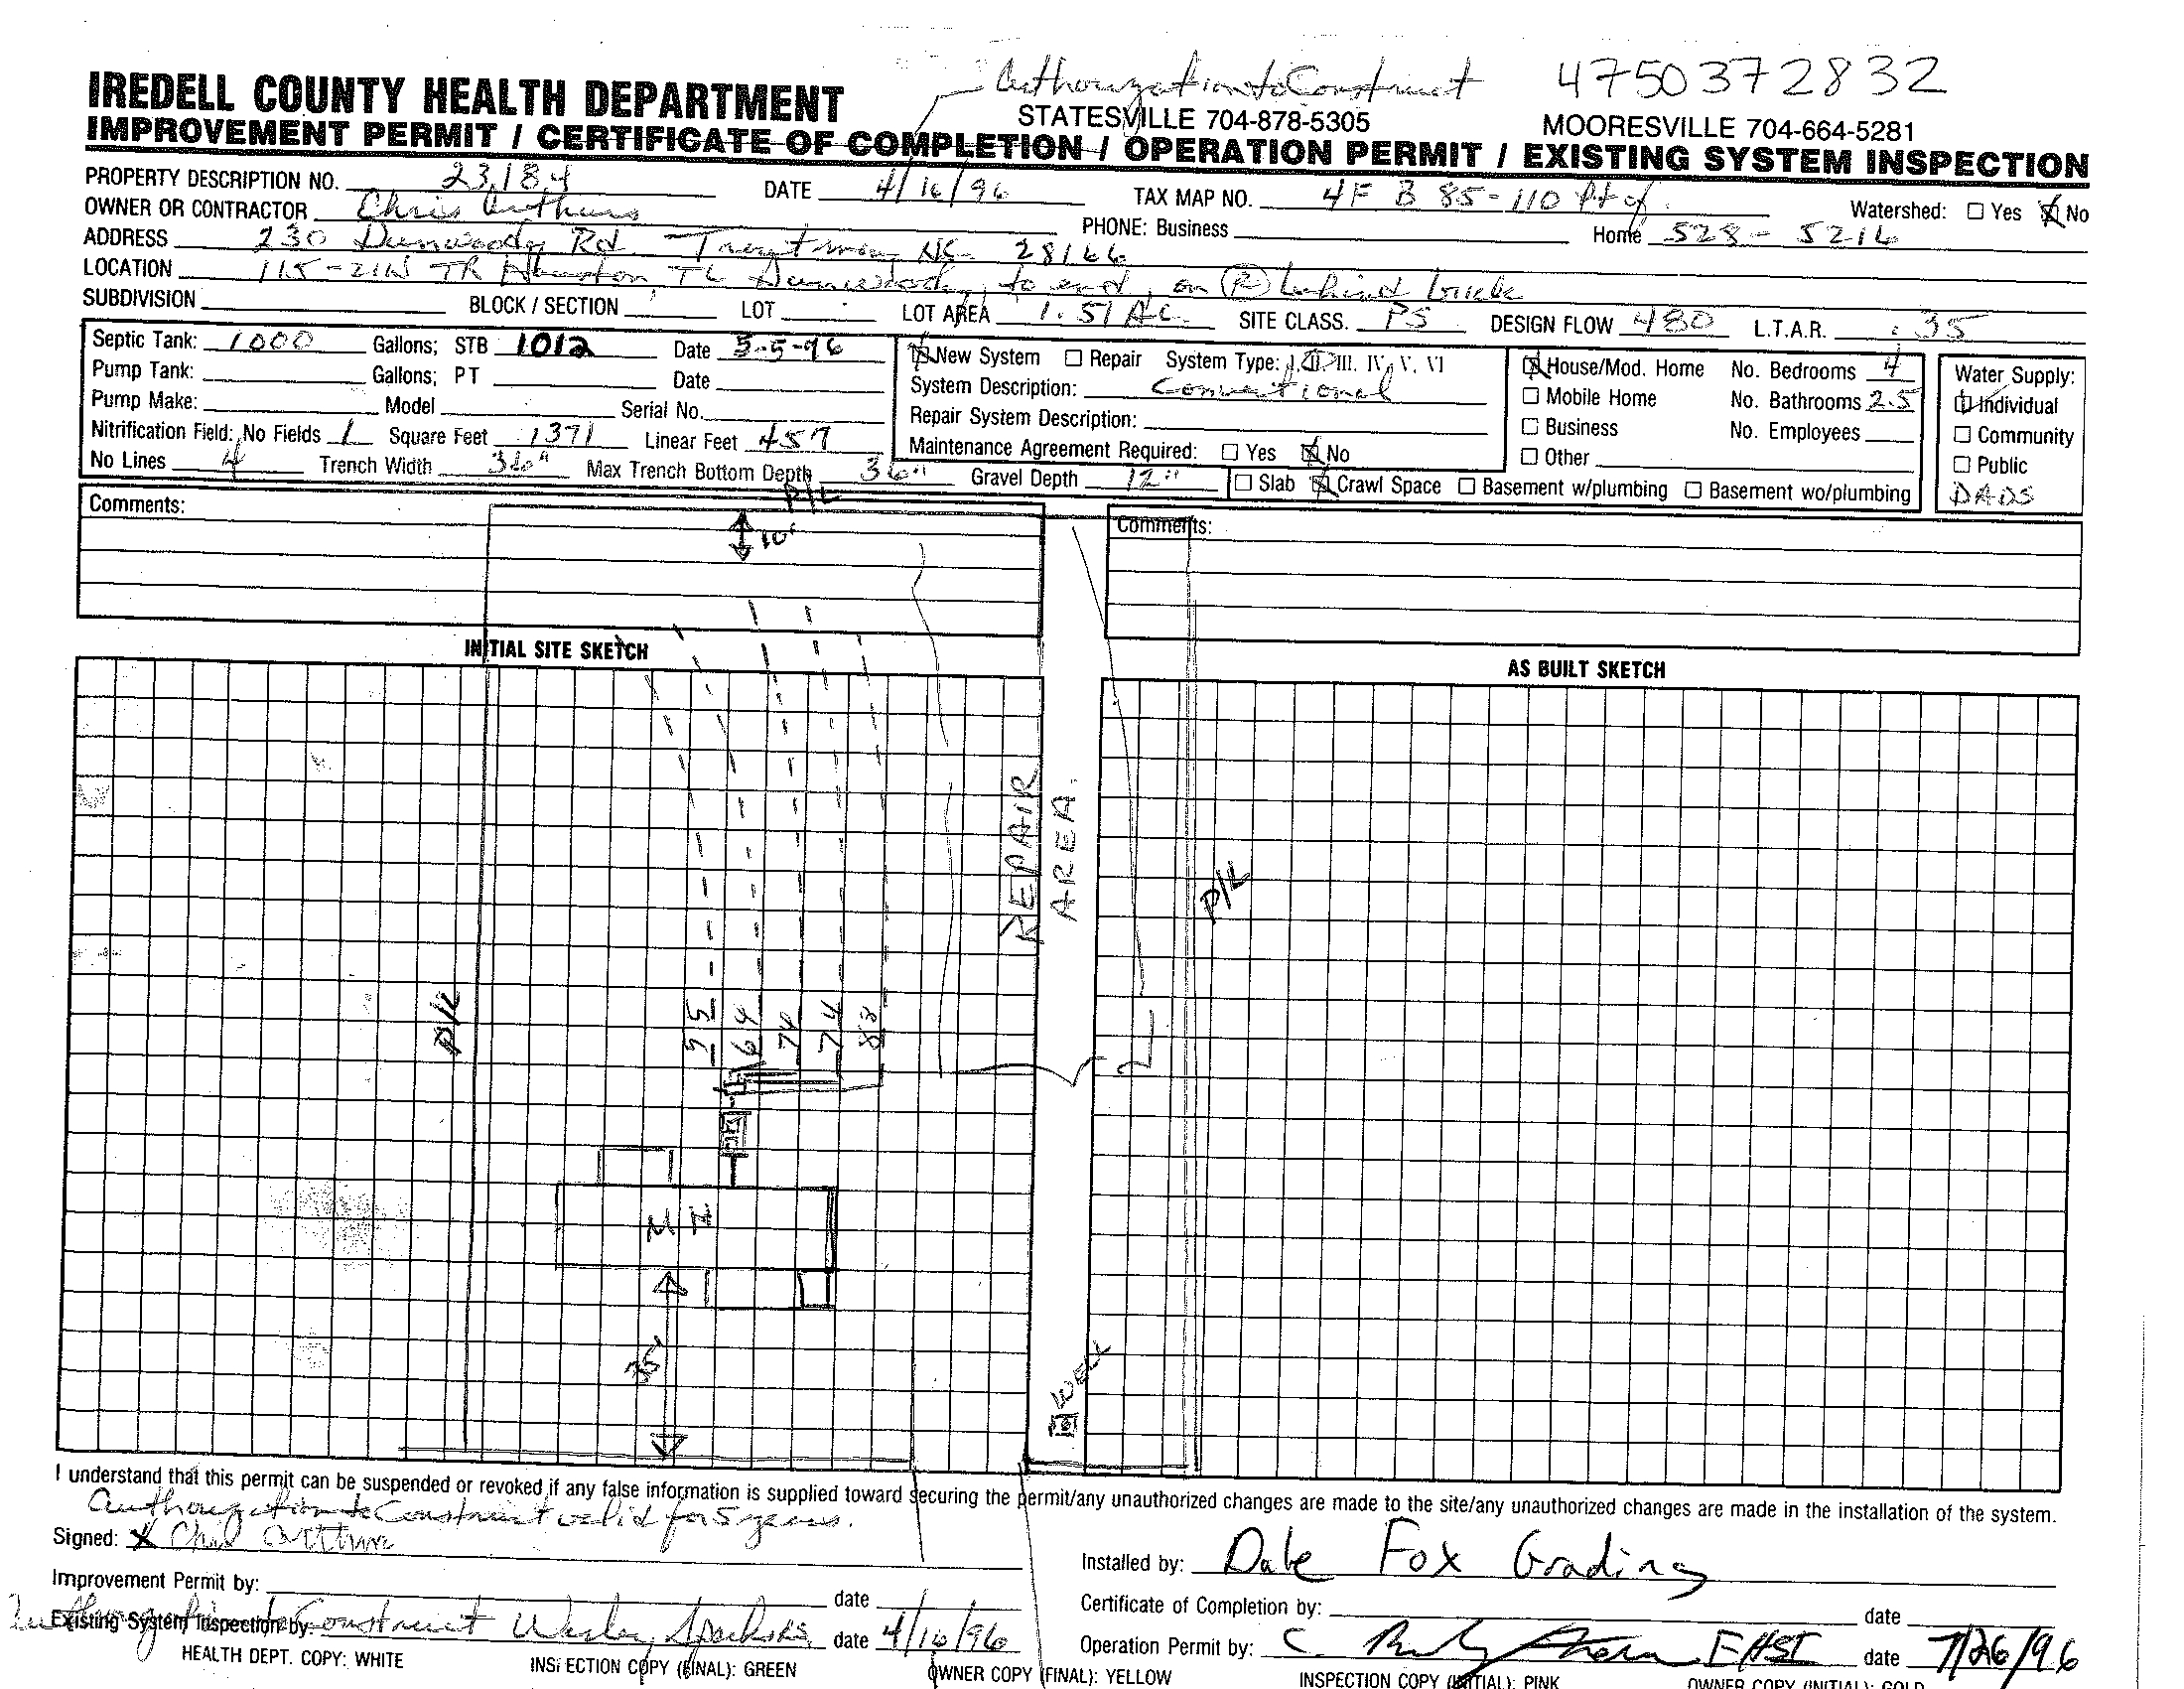 Authorization to Construct 4750372832
IREDELL COUNTY HEALTH DEPARTMENT STATESVILLE 704-878-5305 MOORESVILLE 704-664-5281
IMPROVEMENT PERMIT / CERTIFICATE OF COMPLETION / OPERATION PERMIT / EXISTING SYSTEM INSPECTION
PROPERTY DESCRIPTION NO. 23,184 DATE 4/16/96 TAX MAP NO. 4F B 85-110 Pt of Watershed: Yes No
OWNER OR CONTRACTOR Chris Arthurs PHONE: Business Home 528-5216
ADDRESS 230 Dunwoody Rd. Troutman NC 28166
LOCATION 115-21N TR Houston, TL Dunwoody, to end, on (R) behind brick
SUBDIVISION BLOCK / SECTION LOT LOT AREA 1.51 AC. SITE CLASS. PS DESIGN FLOW 480 L.T.A.R. .35
Septic Tank: 1000 Gallons; STB 1012 Date 3-5-96
Pump Tank: Gallons; PT Date
Pump Make: Model Serial No.
Nitrification Field: No Fields 1 Square Feet 1371 Linear Feet 457
No Lines 4 Trench Width 36" Max Trench Bottom Depth 36" Gravel Depth 12"
New System Repair System Type: I, II, III, IV, V, VI
System Description: Conventional
Repair System Description:
Maintenance Agreement Required: Yes No
House/Mod. Home No. Bedrooms 4
Mobile Home No. Bathrooms 2.5
Business No. Employees
Other
Slab Crawl Space Basement w/plumbing Basement wo/plumbing
Water Supply:
Individual
Community
Public
DADS
Comments: P/L
10'
Comments:
INITIAL SITE SKETCH
AS BUILT SKETCH
REPAIR
AREA.
P/L
P/L
95
64
74
74
83
75'
WELL
I understand that this permit can be suspended or revoked if any false information is supplied toward securing the permit/any unauthorized changes are made to the site/any unauthorized changes are made in the installation of the system.
Authorization to Construct valid for 5 years.
Signed: X Chris Arthurs
Installed by: Dale Fox Grading
Improvement Permit by: date
Certificate of Completion by: date
Authorization to Construct
Existing System Inspection by: Wesley date 4/16/96
Operation Permit by: EHSI date 7/26/96
HEALTH DEPT. COPY: WHITE INSPECTION COPY (FINAL): GREEN OWNER COPY (FINAL): YELLOW INSPECTION COPY (INITIAL): PINK OWNER COPY (INITIAL): GOLD